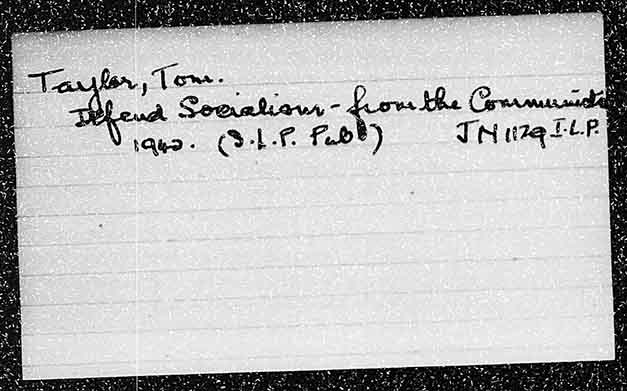 Taylor, Tom.
Defend Socialism - from the Communists
1942. (I.L.P. Pubs) JN 1129 I.L.P.